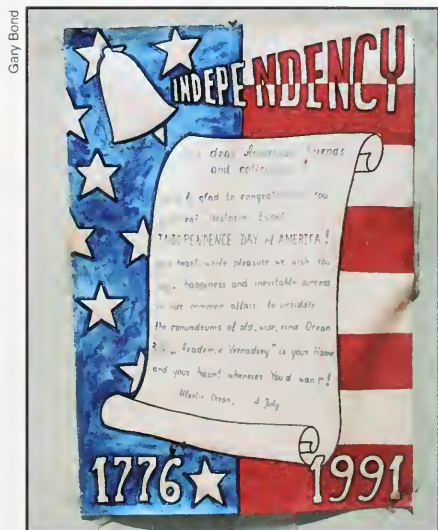 Gary Bond
INDEPENDENCY
dear American friends
and
glad to you
Event
INDEPENDENCE DAY of AMERICA!
pleasure we wish You
happiness and inevitable success
our common affair to unriddle
the conundrums of old, wise, kind Ocean
"Academic Vernadsky" is your Home
and your haunt wherever You'd want!
Atlantic Ocean, 4 July
1776 1991